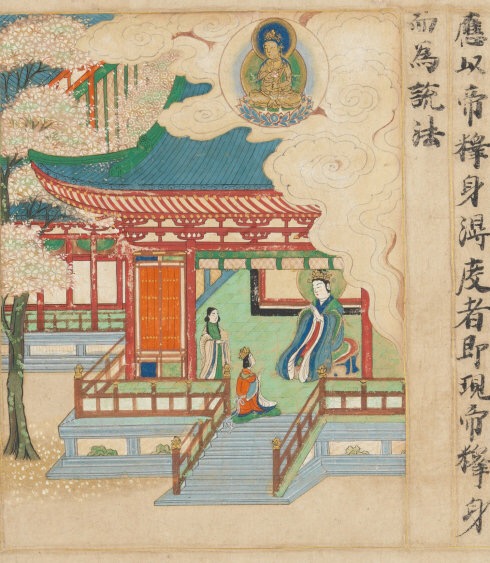 應以帝釋身得度者即現帝釋身
而為說法